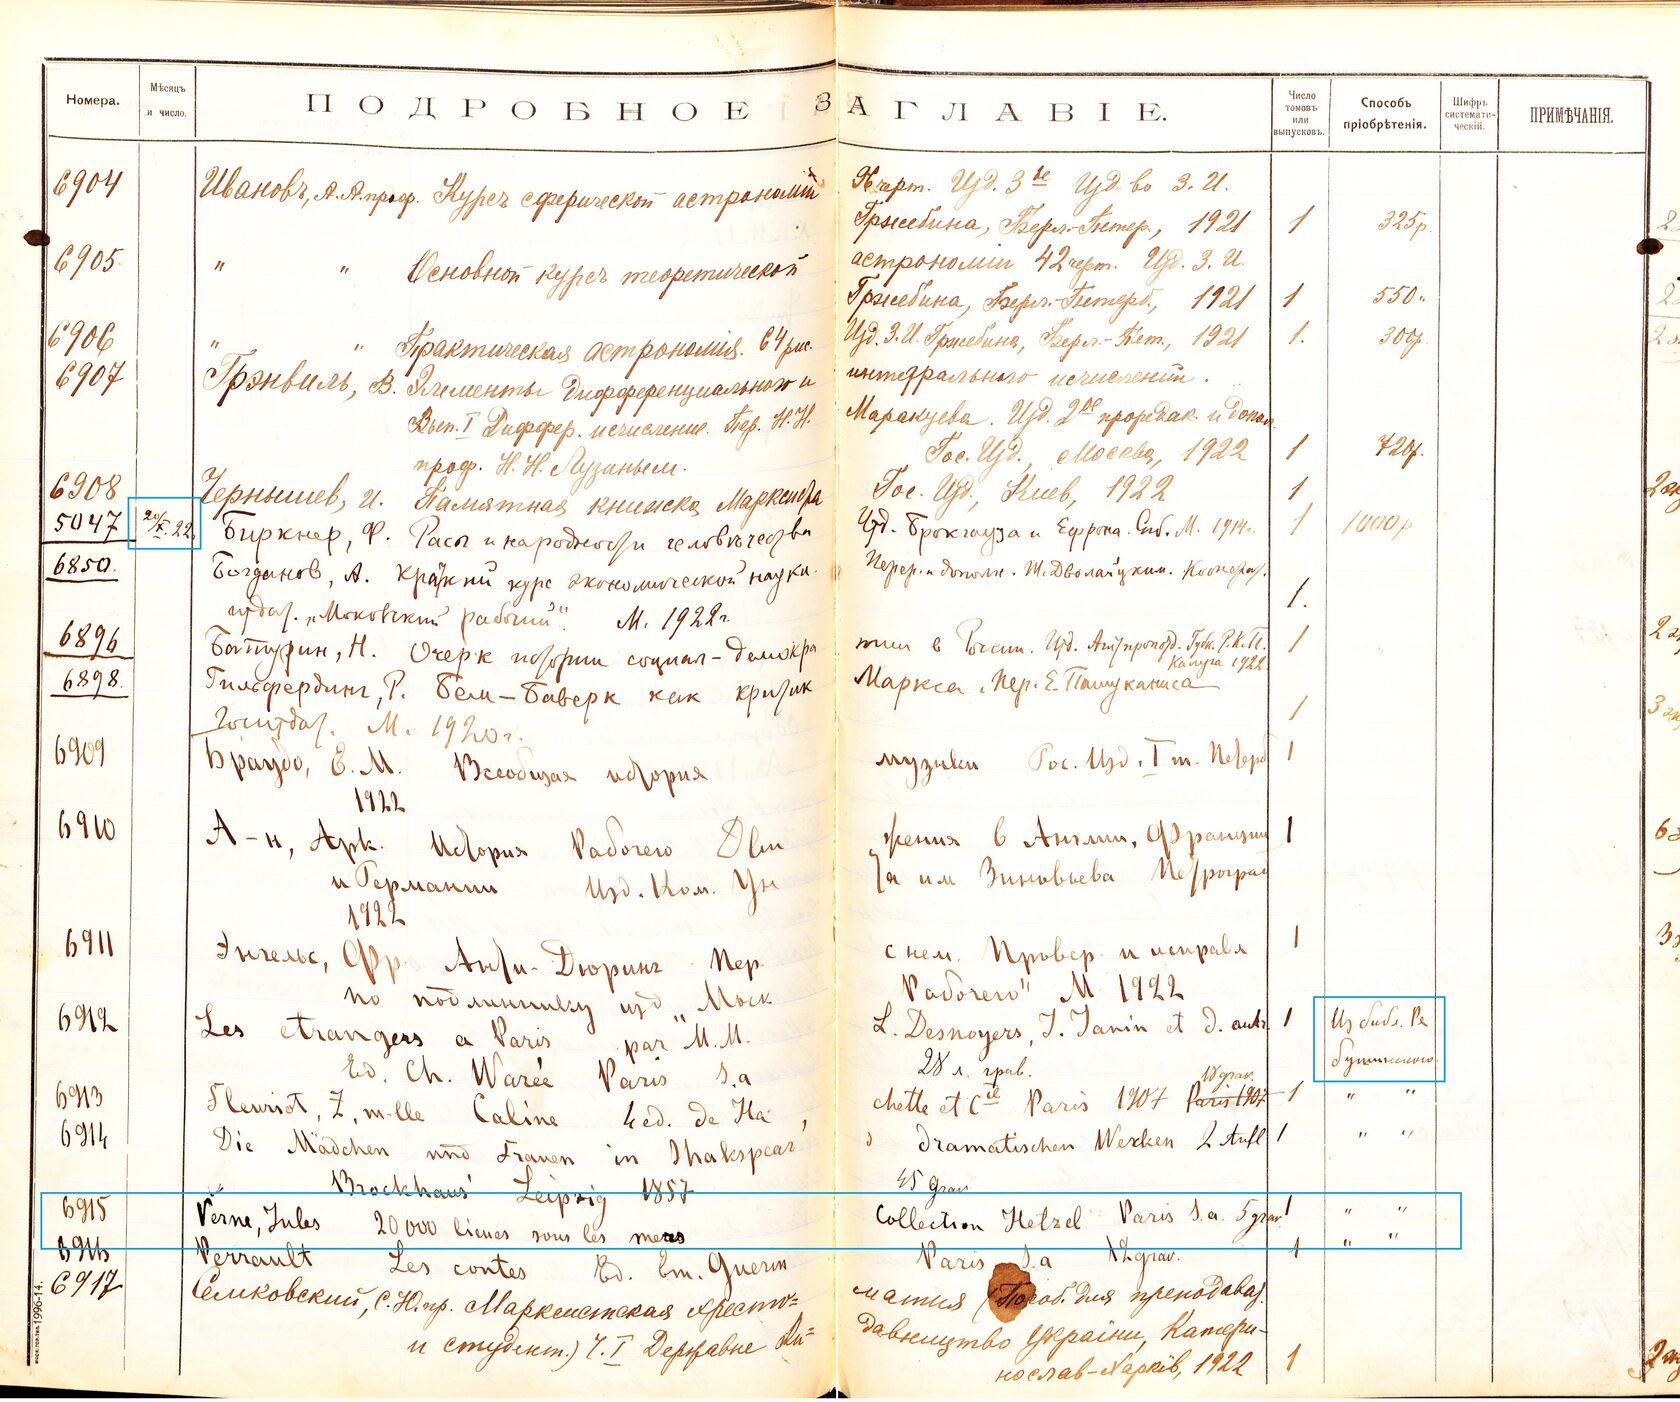 Номера.
Мѣсяцъ и число.
ПОДРОБНОЕ ЗАГЛАВІЕ.
Число томовъ или выпусковъ.
Способъ пріобрѣтенія.
Шифръ системати-ческій.
ПРИМѢЧАНІЯ.
6904 Ивановъ, А. А. проф. Курсъ сферической астрономіи черт. Изд. 3ье Изд-во З. И.
Гржебина, Берл.-Петер., 1921 1 325р.
6905 " " Основной курсъ теоретической астрономіи 42 черт. Изд. З. И.
Гржебина, Берл.-Петерб., 1921 1 550"
6906 " " Практическая астрономія. 64 рис. Изд. З. И. Гржебина, Берл.-Пет., 1921 1. 300р.
6907 Грэнвиль, В. Элементы дифференціального и интегрального исчисленій.
Вып. I Диффер. исчисление. Пер. Н. Н. Маракуева. Изд. 2ое прор едак. и допол.
проф. Н. Н. Лузиным. Гос. Изд., Москва, 1922 1 720р.
6908 Чернышев, И. Памятная книжка Марксиста Гос. Изд., Киев, 1922 1
5047 22. Биркнер, Ф. Расы и народности человѣчества Изд. Брокгауза и Ефрона. Спб. М. 1914г. 1 1000р
6850. Богданов, А. Краткий курс экономической науки. Перер. и дополн. Ш. Дволайцким. Кооперат.
издат. "Московский рабочий". М. 1922г. 1.
6896 Батурин, Н. Очерк истории социал-демокра тии в России. Изд. Агитпропотд. Губк. Р.К.П. 1
Калуга 1922
6898. Гильфердинг, Р. Бем-Баверк как критик Маркса. Пер. Е. Пашуканиса
Госиздат. М. 1920г. 1
6909 Браудо, Е. М. Всеобщая история музыки Гос. Изд. I т. Петерб 1
1922
6910 А-н, Арк. История Рабочего Дви жения в Англии, Франции 1
и Германии Изд. Ком. Ун та им Зиновьева Петроград
1922
6911 Энгельс, Фр. Анти-Дюринг Пер. с нем. Провер. и исправл 1
по подлиннику изд "Моск Рабочего" М 1922
6912 Les etrangers a Paris par M.M. L. Desnoyers, J. Janin et d. autr. 1 Из библ. Ре
Ed. Ch. Warée Paris s.a 28 л. грав. бушинского.
6913 Fleuriot, Z, m-lle Caline 4 ed. de Ha chette et Cie Paris 1907 18 grav. Paris 1907 1 " "
6914 Die Mädchen und Frauen in Shakspear' s dramatischen Werken 2 Aufl 1 " "
Brockhaus' Leipzig 1857 45 grav
6915 Verne, Jules 20 000 lieues sous les mers Collection Hetzel Paris s.a. 5 grav. 1 " "
6916 Perrault Les contes Ed. Em. Guerin Paris s.a 12 grav. 1 " "
6917 Семковский, С. Ю. пр. Марксистская хресто= матия (Пособ. для преподават.
и студент.) Ч. I Державне Ви= давництво України, Катери-
нослав-Харків, 1922 1
1996-14.